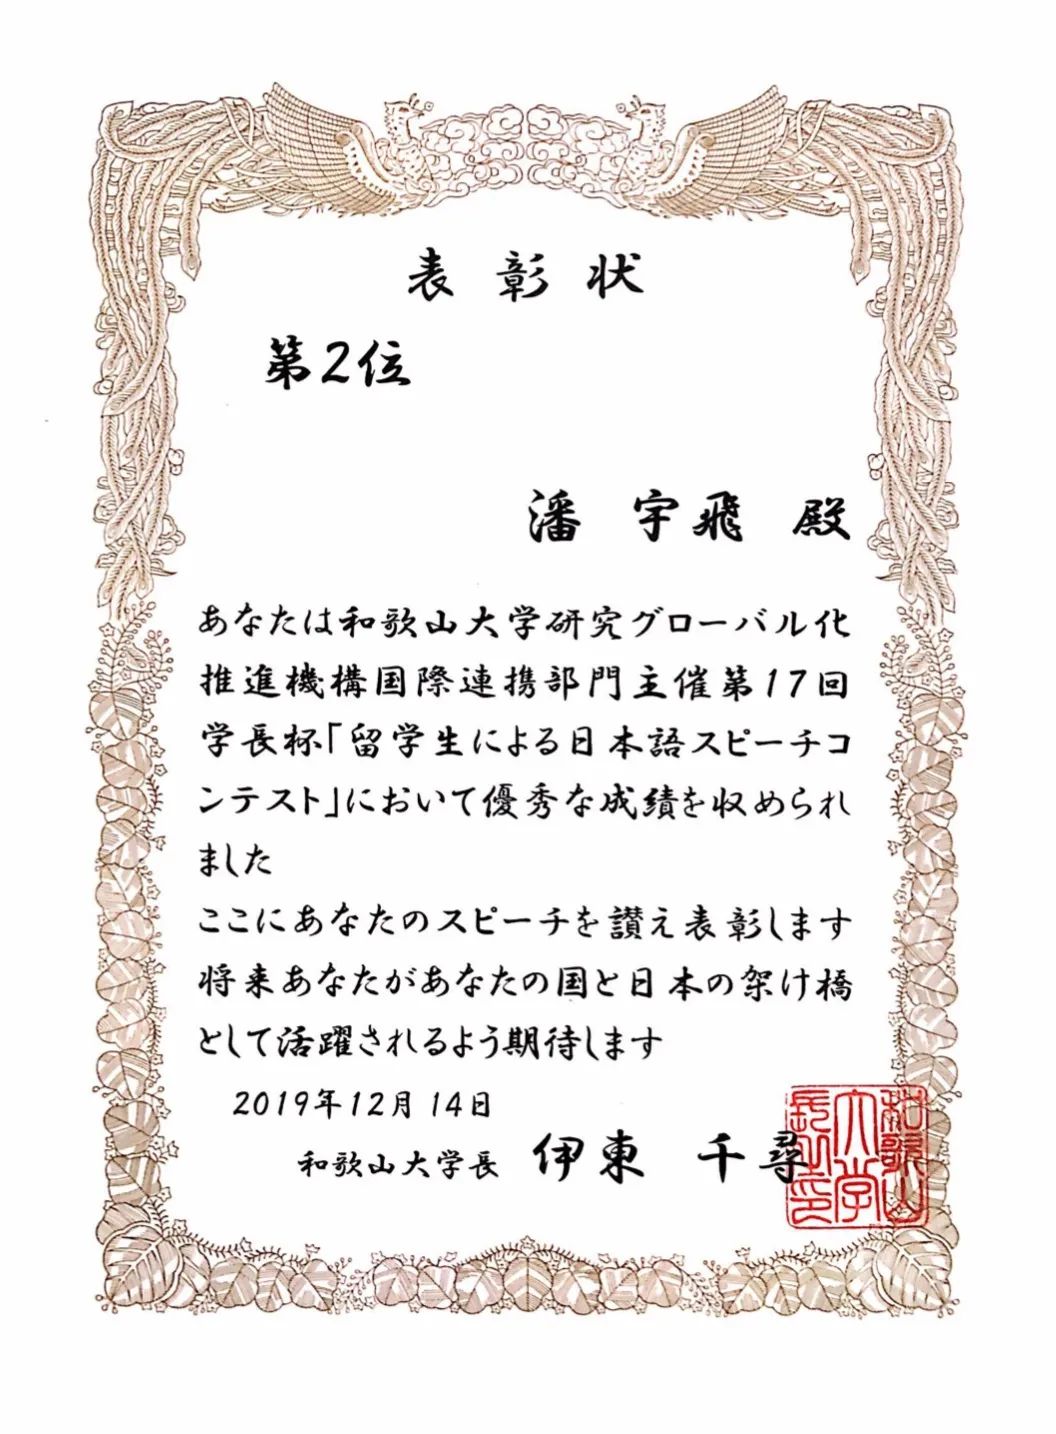 表彰状
第2位
潘 宇飛 殿
あなたは和歌山大学研究グローバル化
推進機構国際連携部門主催第17回
学長杯「留学生による日本語スピーチコ
ンテスト」において優秀な成績を収められ
ました
ここにあなたのスピーチを讃え表彰します
将来あなたがあなたの国と日本の架け橋
として活躍されるよう期待します
2019年12月14日
和歌山大学長 伊東 千尋
和歌山
大学
長之印